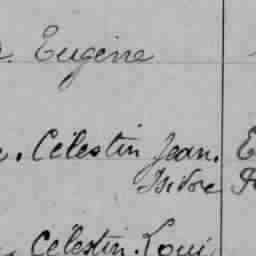 Eugène
Célestin Jean.
Isidore
Célestin. Loui